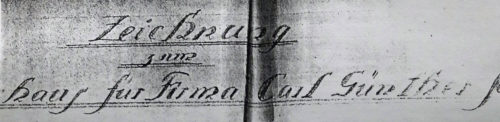 Zeichnung
zum
haus für Firma Carl Günther